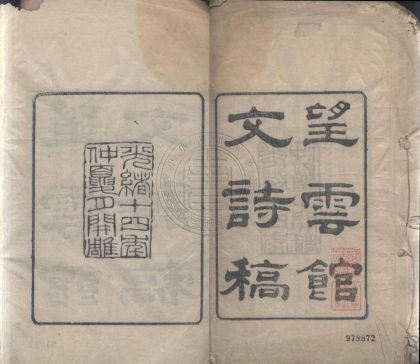 望雲館
文詩稿
光緒十四年
仲夏月開雕
978872